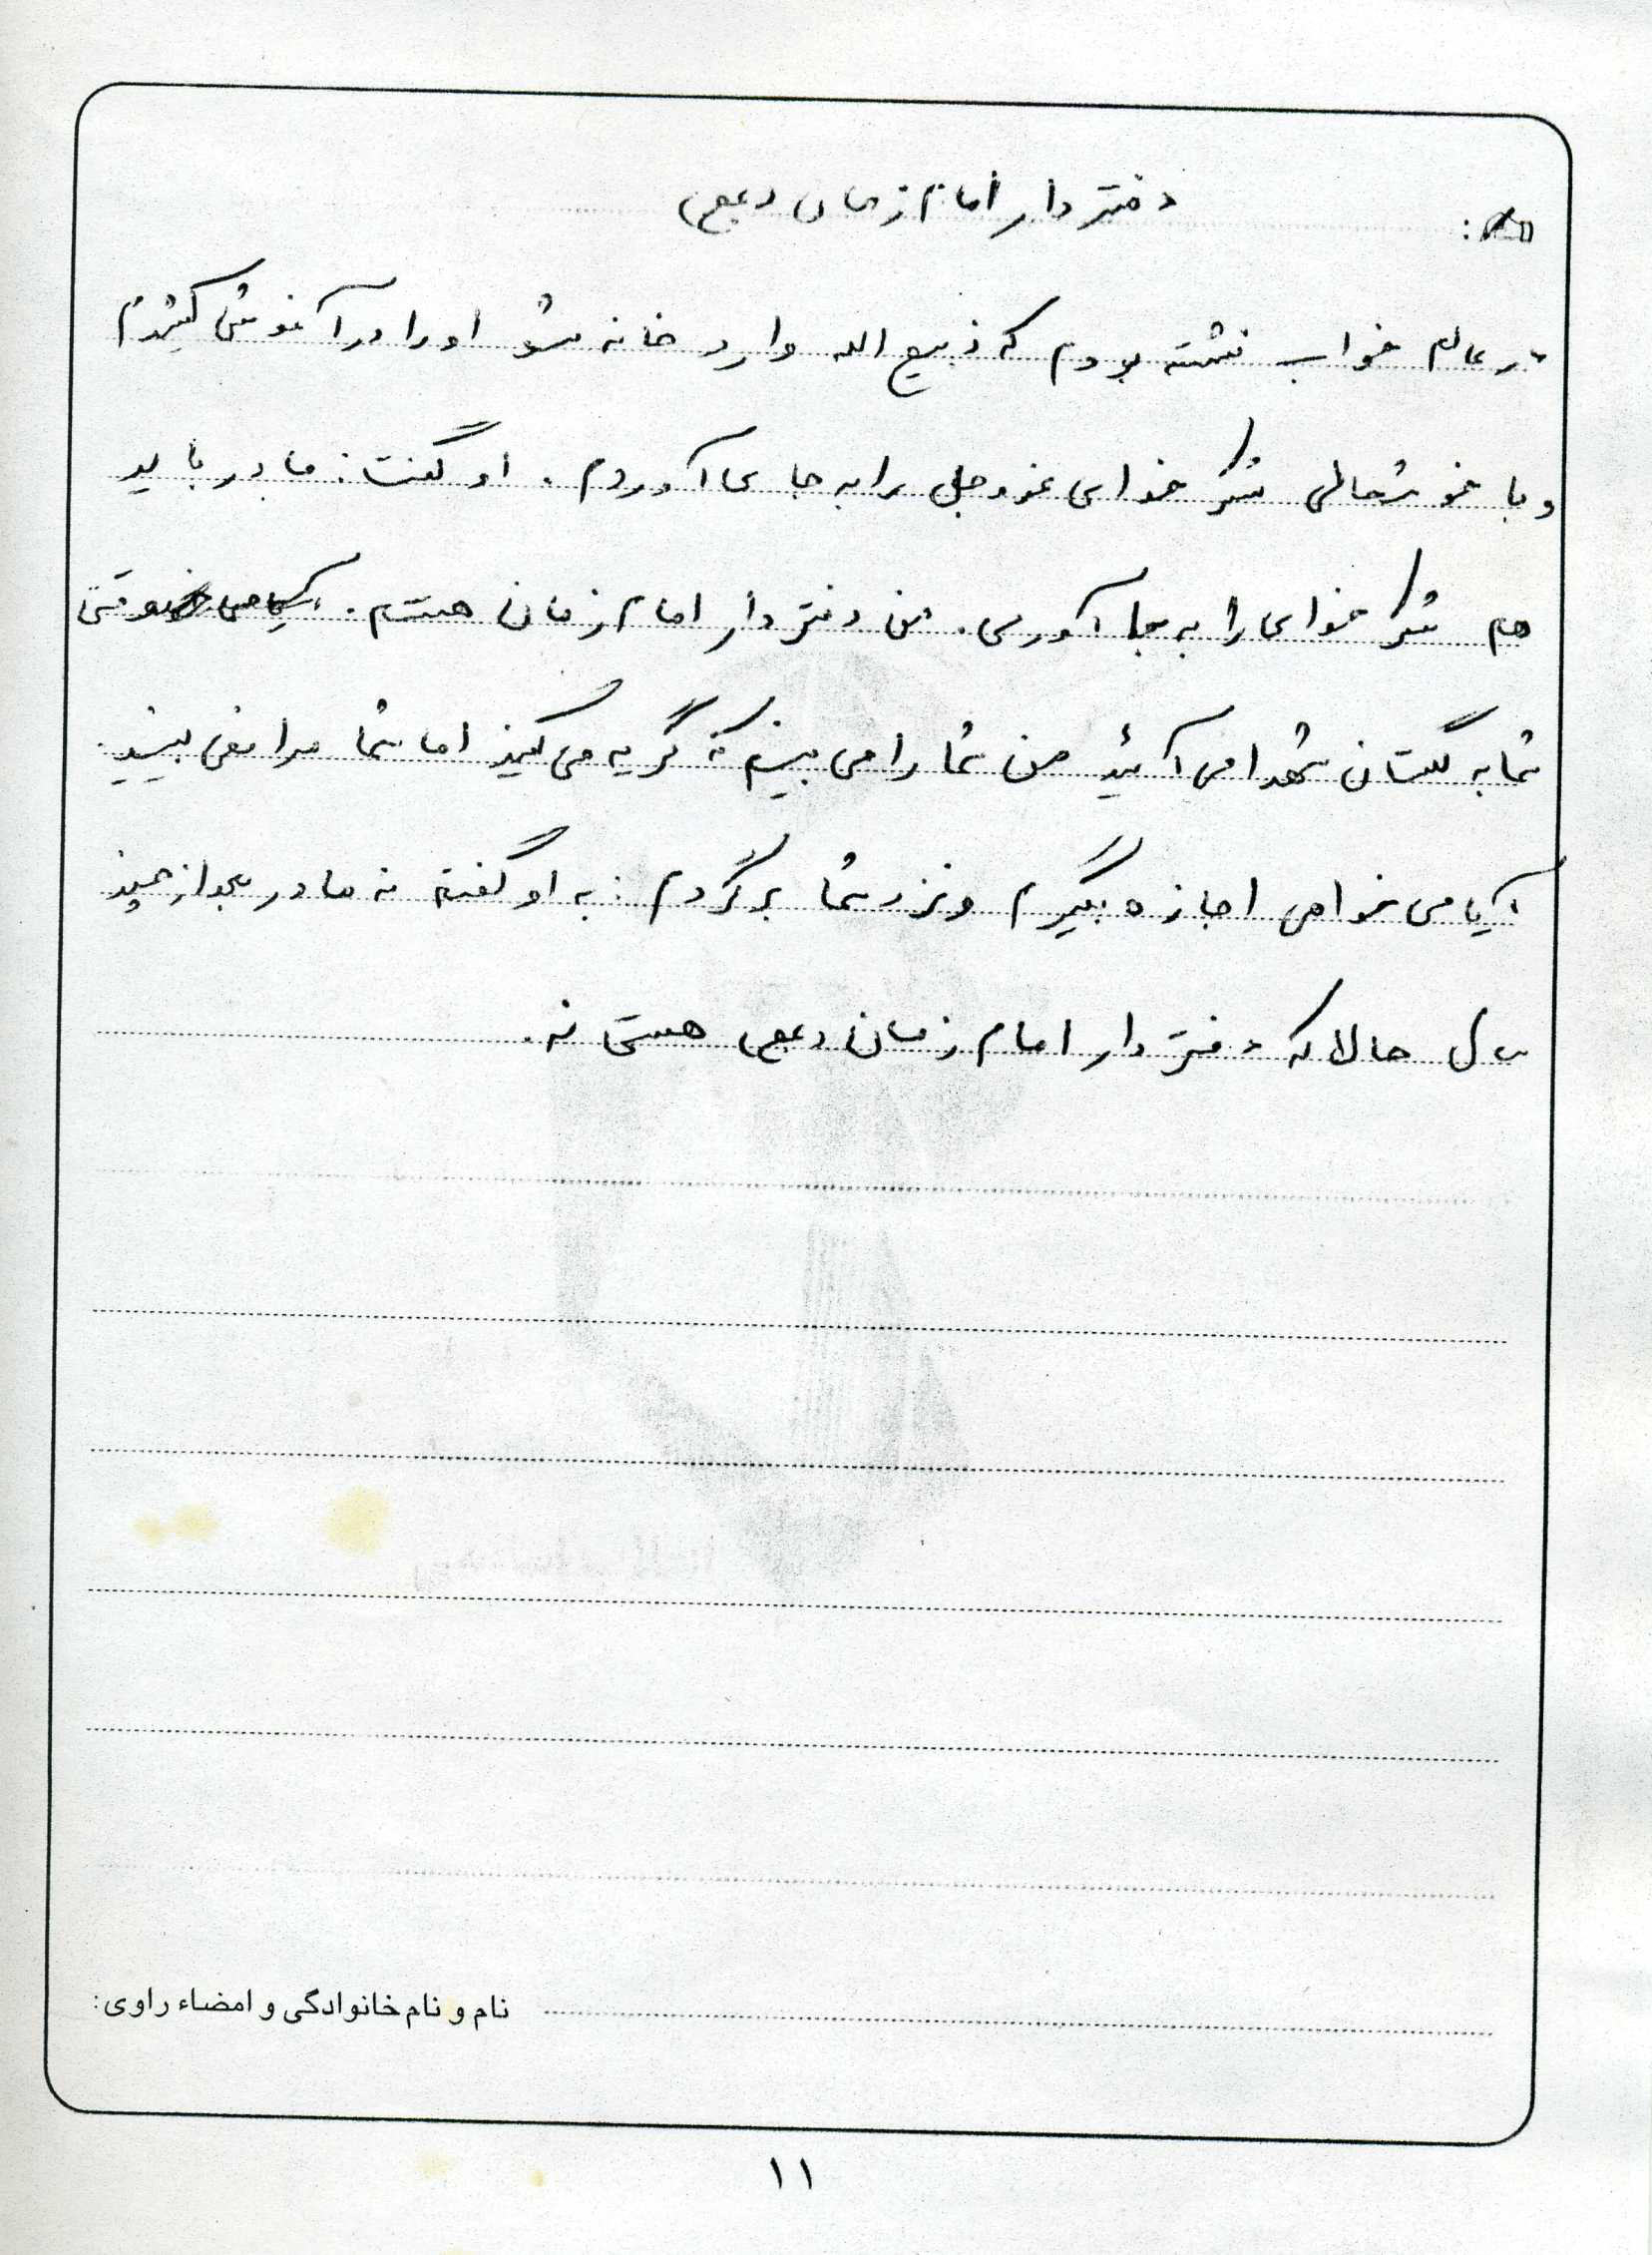 دفتر دار امام زمان (عج)
در عالم خواب نشسته بودم که ذبیح الله وارد خانه شد او را در آغوش کشیدم
و با خوشحالی شکر خدای عزوجل را به جای آوردم. او گفت: مادر باید
هم شکر خدای را به جا آوری. من دفتر دار امام زمان هستم. وقتی
شما به گلستان شهدا می آئید من شما را می بینم که گریه می کنید اما شما مرا نمی بینید.
آیا می خواهی اجازه بگیرم و نزد شما برگردم: به او گفتم نه مادر بعد از چند
سال حالا که دفتر دار امام زمان (عج) هستی نه.
نام و نام خانوادگی و امضاء راوی:
۱۱